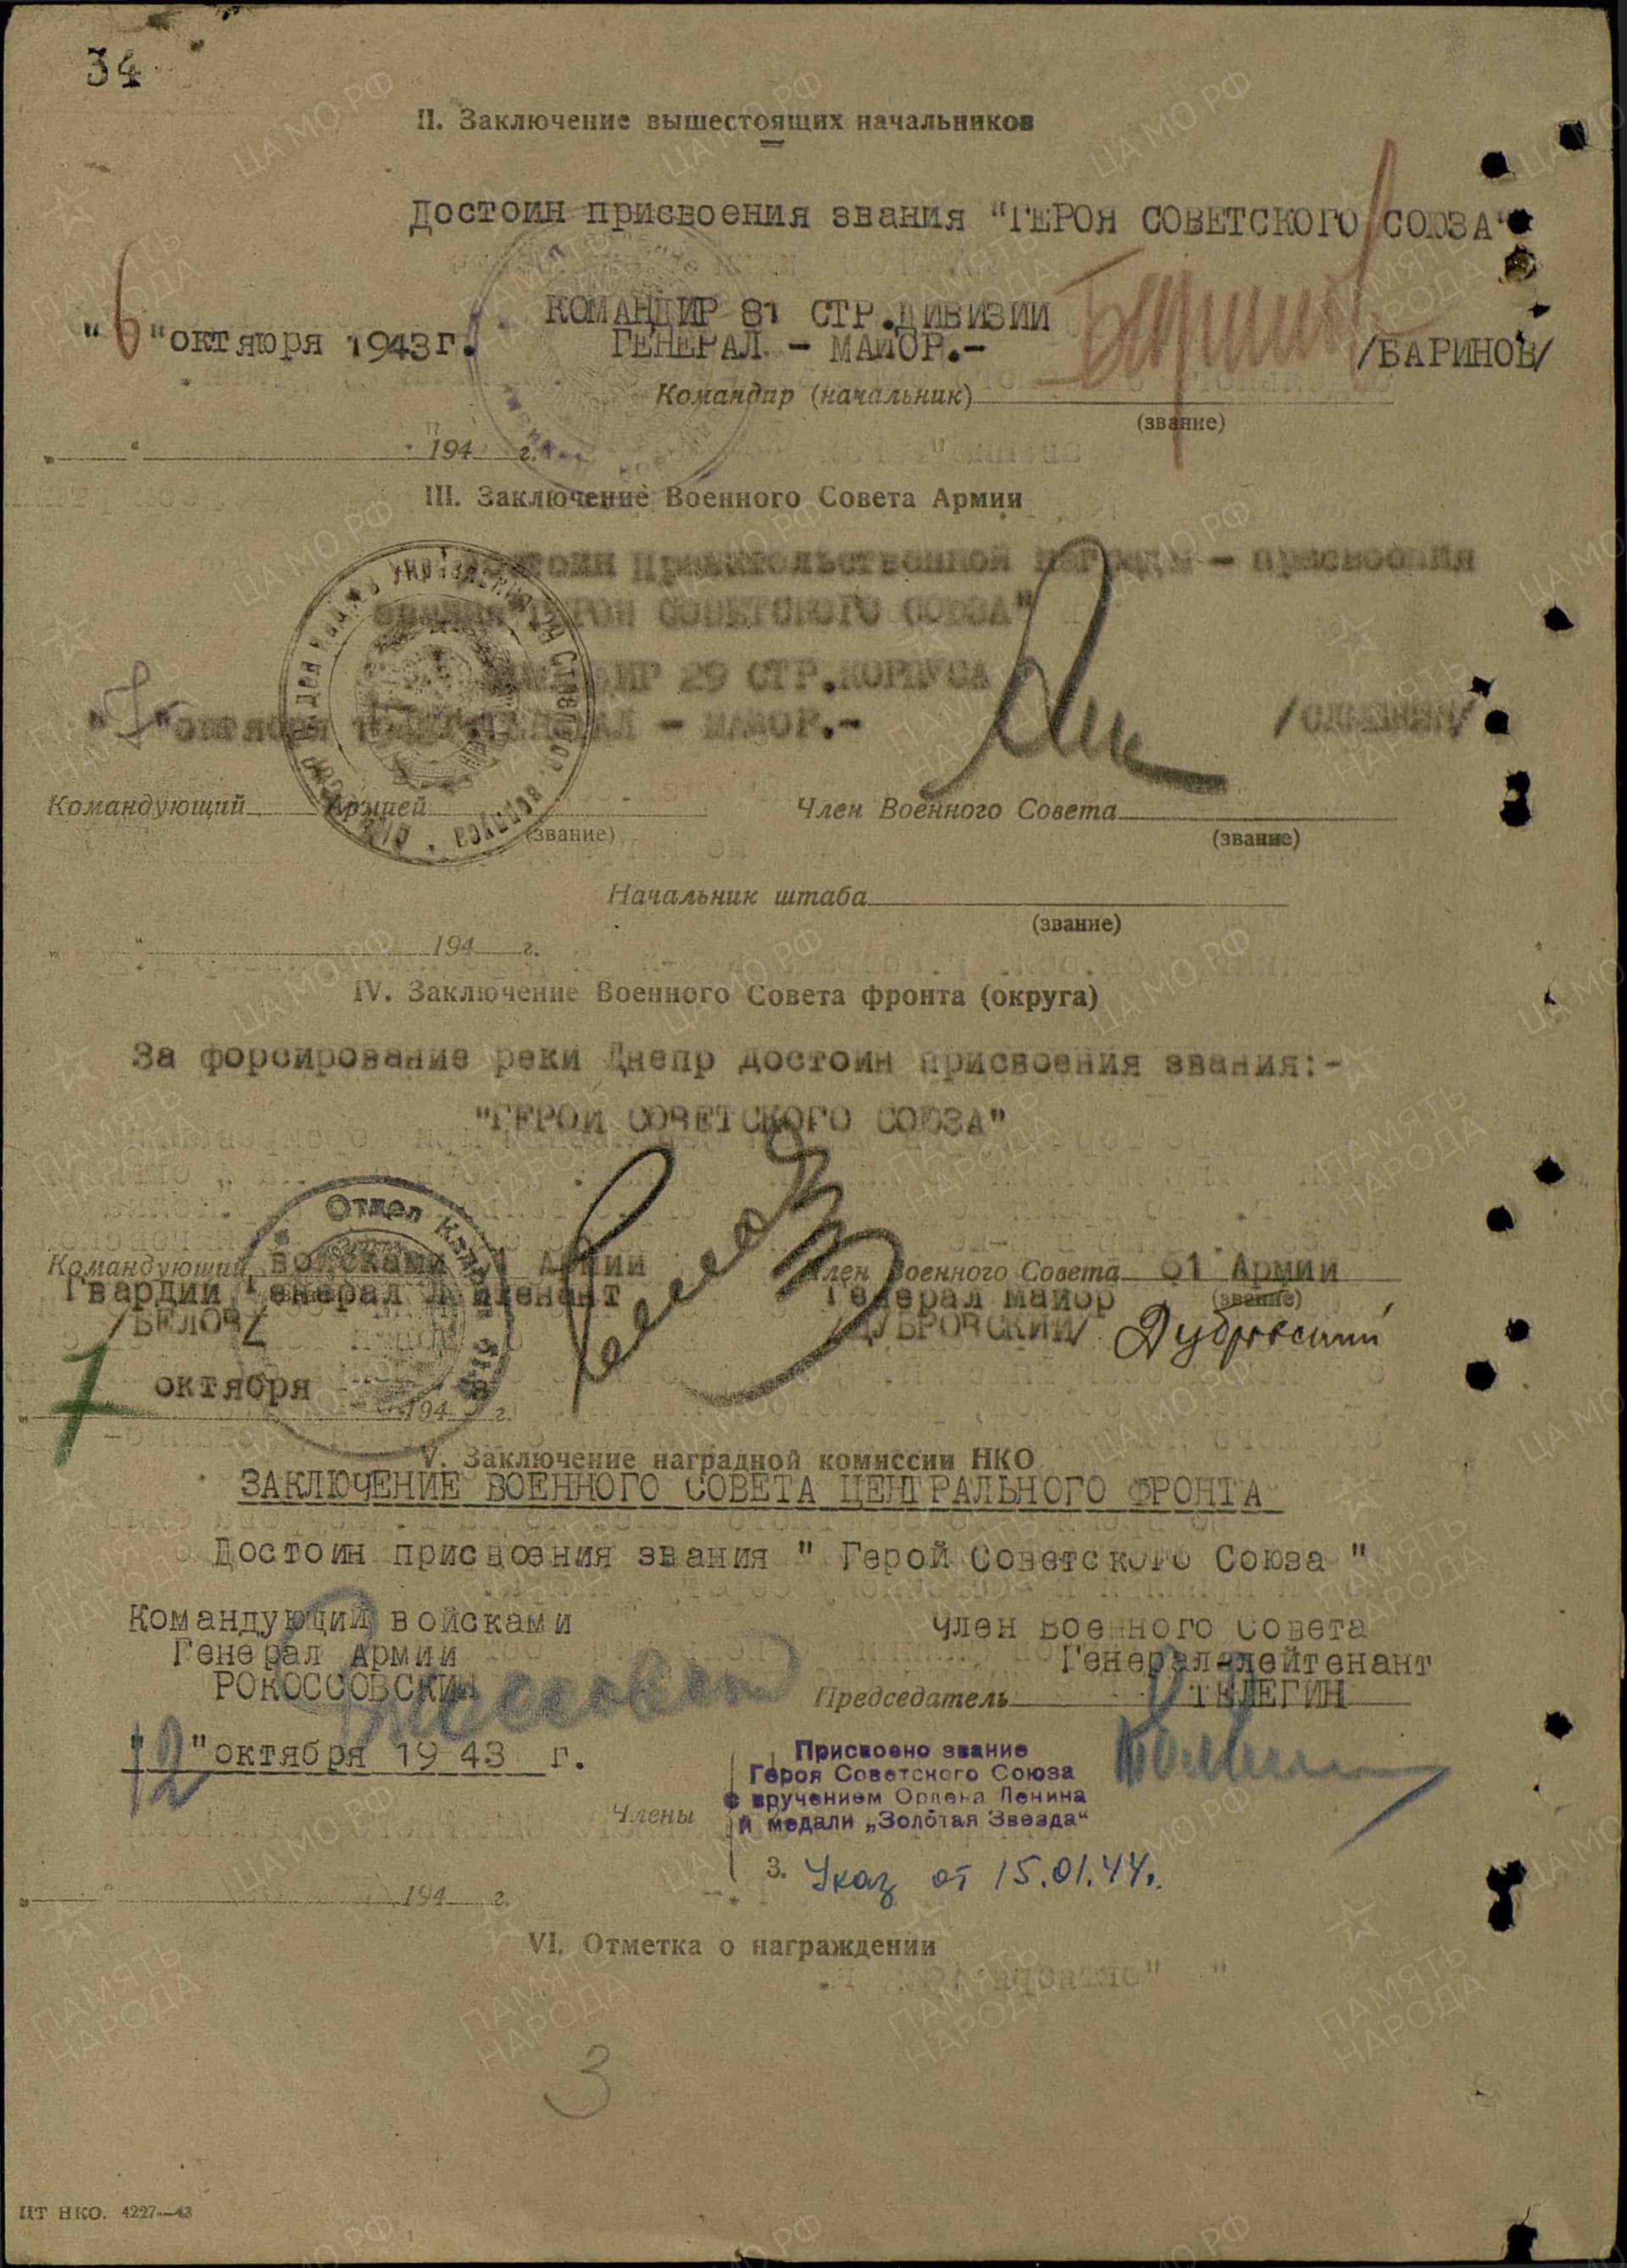 34
II. Заключение вышестоящих начальников
Достоин присвоения звания "ГЕРОЯ СОВЕТСКОГО СОЮЗА"
КОМАНДИР 81 СТР.ДИВИЗИИ
"6"октяюря 1943г. ГЕНЕРАЛ - МАЙОР.- /БАРИНОВ/
Командир (начальник)
(звание)
„ “ 194 г.
III. Заключение Военного Совета Армии
Достоин Правительственной награды - присвоения
звания "ГЕРОЯ СОВЕТСКОГО СОЮЗА"
КОМАНДИР 29 СТР.КОРПУСА
"7"октября ГЕНЕРАЛ - МАЙОР.-
Командующий Армией Член Военного Совета
(звание) (звание)
Начальник штаба
(звание)
„ “ 194 г.
IV. Заключение Военного Совета фронта (округа)
За форсирование реки Днепр достоин присвоения звания:-
"ГЕРОЙ СОВЕТСКОГО СОЮЗА"
Отдел
Командующий войсками 61 Армии Член Военного Совета 61 Армии
Гвардии Генерал Лейтенант Генерал майор (звание)
/БЕЛОВ/ /ДУБРОВСКИЙ/ Дубровский
7 октября 194 3 г.
V. Заключение наградной комиссии НКО
ЗАКЛЮЧЕНИЕ ВОЕННОГО СОВЕТА ЦЕНТРАЛЬНОГО ФРОНТА
Достоин присвоения звания " Герой Советского Союза "
Командующий войсками Член Военного Совета
Генерал Армии Генерал-лейтенант
РОКОССОВСКИЙ Председатель ТЕЛЕГИН
"12"октября 1943 г.
Присвоено звание
Героя Советского Союза
с вручением Ордена Ленина
Члены и медали „Золотая Звезда“
3. Указ от 15.01.44г.
„ “ 194 г.
VI. Отметка о награждении
3
ЦТ НКО. 4227—43
ЦА МО РФ
ПАМЯТЬ НАРОДА